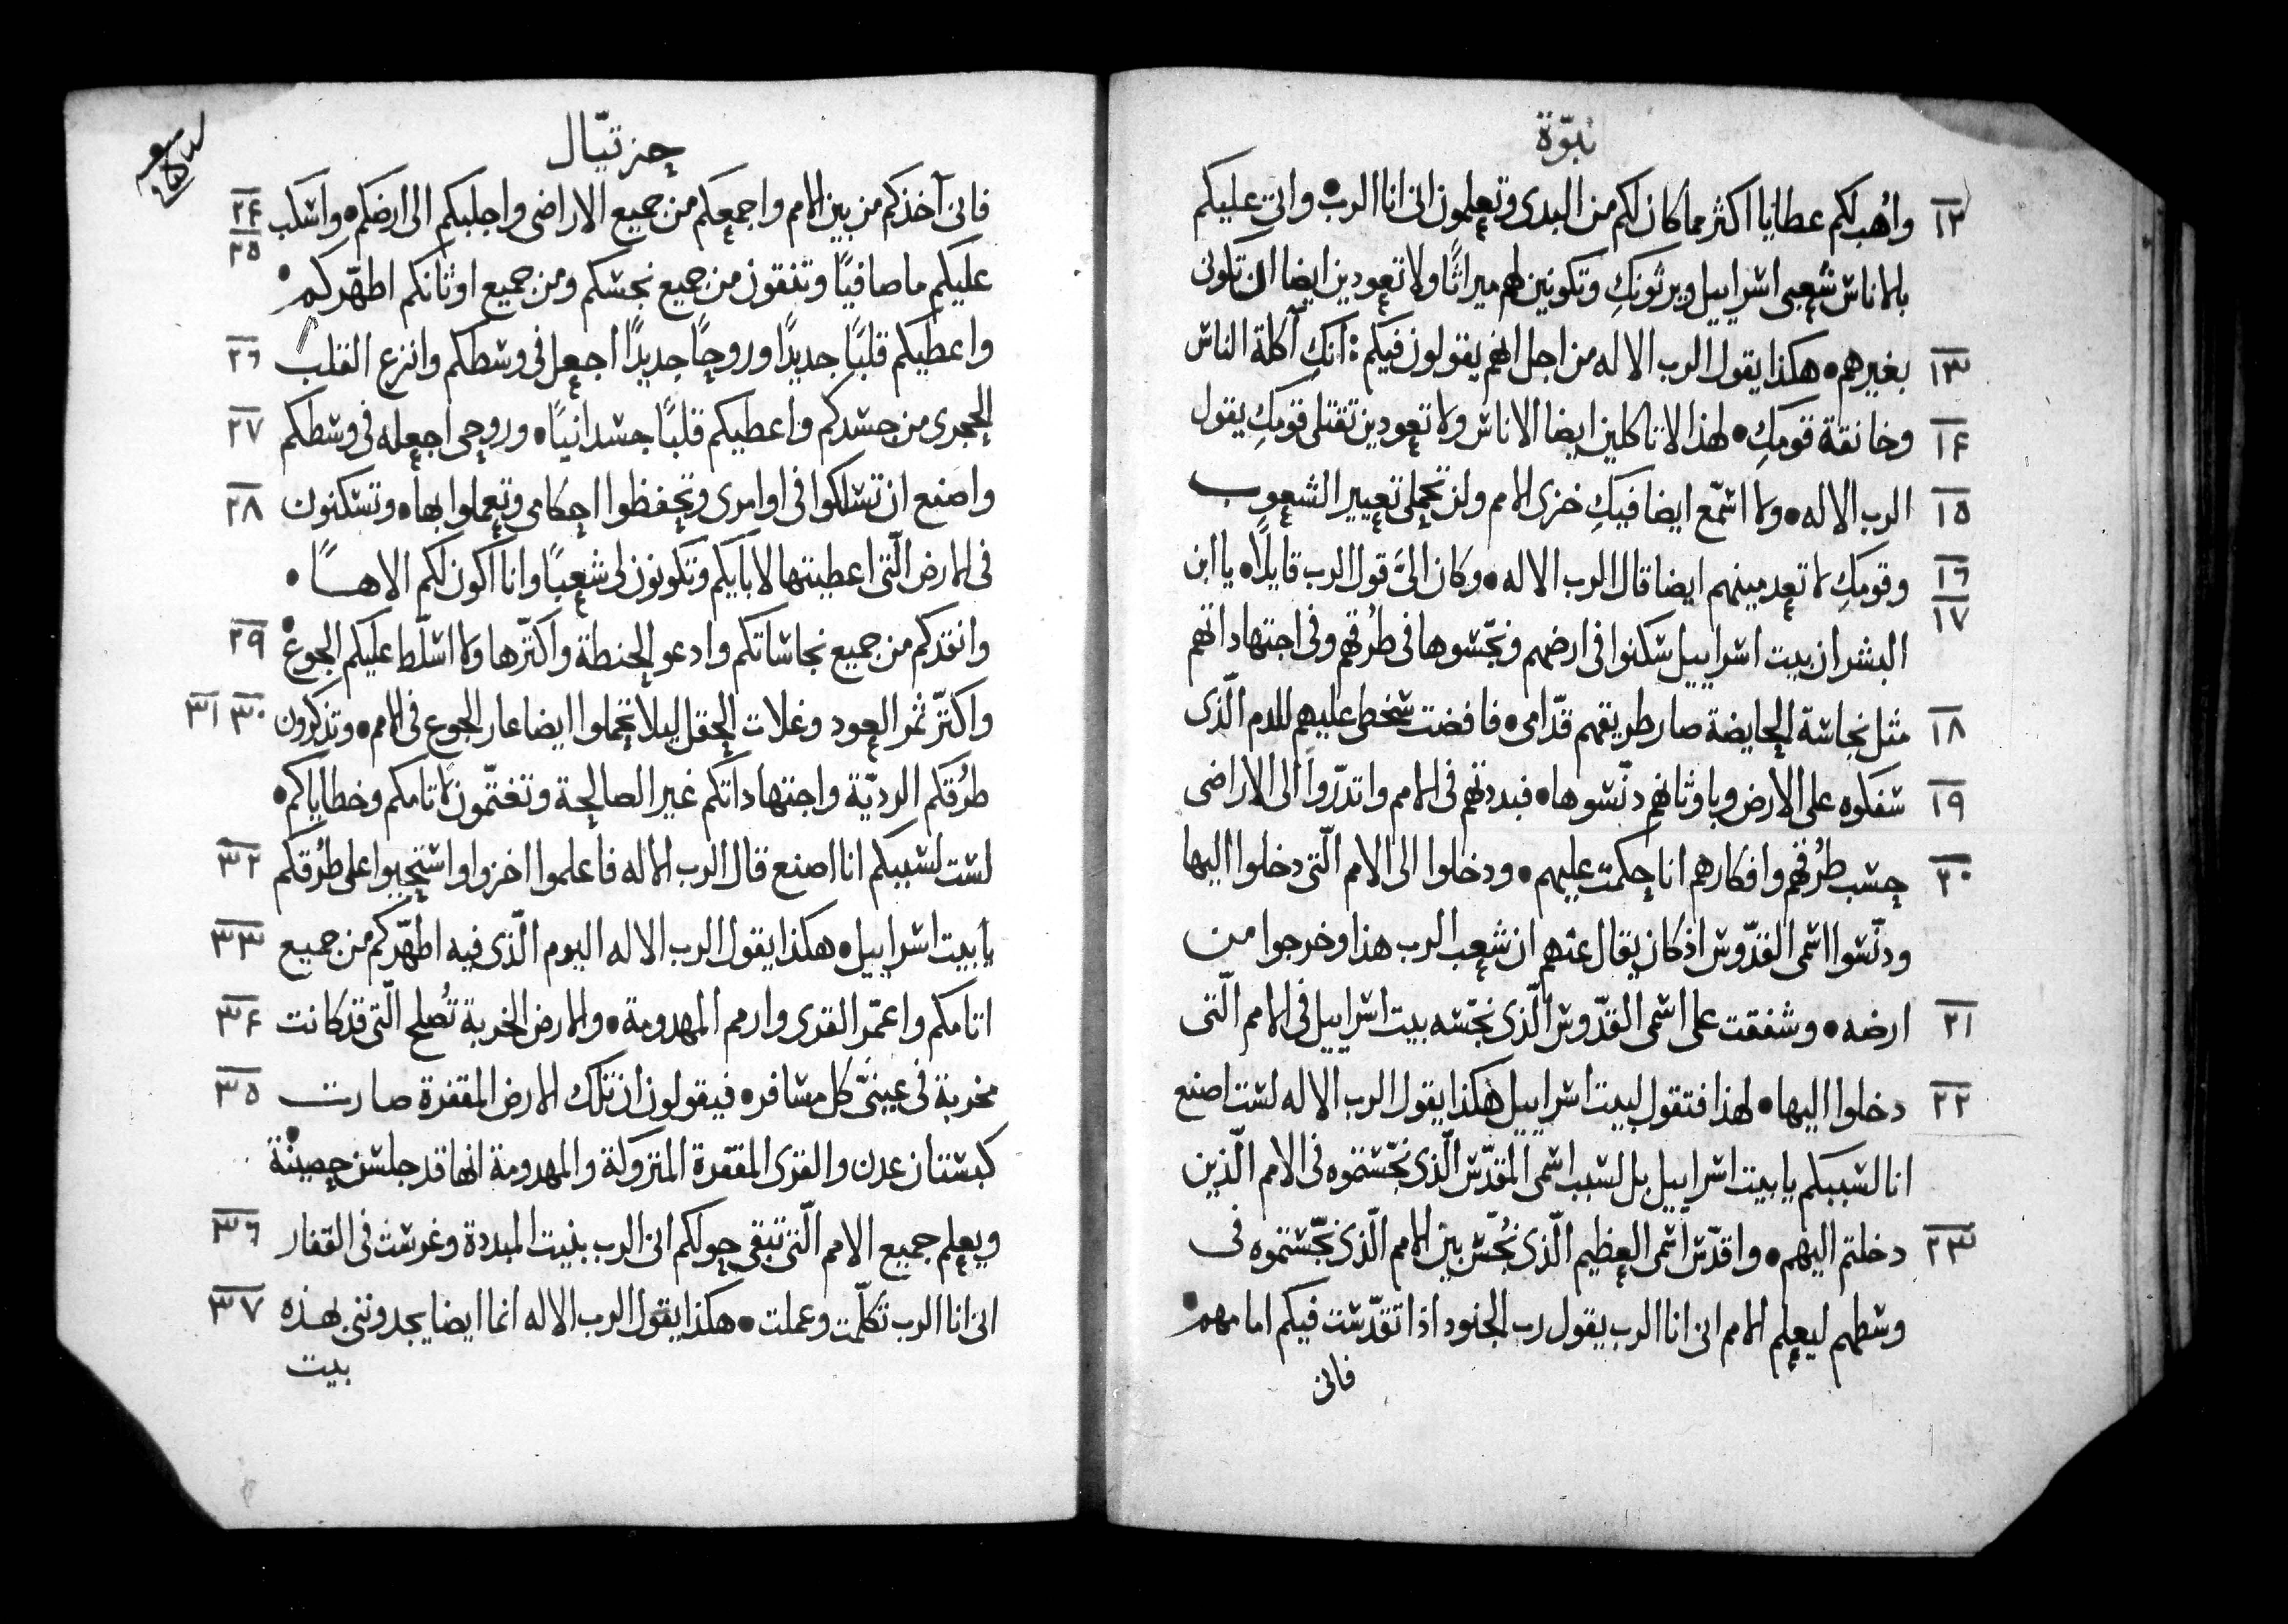 نبوّة
١٢ واُهب لكم عطايا اكثر مما كان لكم من البدى وتعلمون انى انا الرب • واتى عليكم
بالاناس شعبى اسراييل ويرثونكِ وتكونين لهم ميراثًا ولا تعودين ايضا ان تكونى
١٣ بغيرهم • هكذا يقول الرب الاله من اجل انهم يقولون فيكم : انكِ آكلة الناس
١٤ وخانقة قومكِ • لهذا لا تاكلين ايضا الاناس ولا تعودين تقتلى قومكِ يقول
١٥ الرب الاله • ولا اسمّع ايضا فيكِ خزى الامم ولن تحملى تعيير الشعوب
١٦ وقومكِ لا تعدمينهم ايضا قال الرب الاله • وكان الىَّ قول الرب قايلًا • يا ابن
١٧ البشر ان بيت اسراييل سكنوا فى ارضهم ونجّسوها فى طُرقهم وفى اجتهاداتهم
١٨ مثل نجاسة الحايضة صار طريقهم قدّامى • فافضت سخطى عليهم للدم الّذى
١٩ سفكوه على الارض وباوثانهم دنّسوها • فبددتهم فى الامم واتدرّوا الى الاراضى
٢٠ حسب طُرقهم وافكارهم انا حكمت عليهم • ودخلوا الى الامم الّتى دخلوا اليها
ودنّسوا اسمى القدّوس اذ كان يقال عنهم ان شعب الرب هذا وخرجوا من
٢١ ارضه • وشفقت على اسمى القدّوس الّذى نجّسه بيت اسراييل فى الامم الّتى
٢٢ دخلوا اليها • لهذا فتقول لبيت اسراييل هكذا يقول الرب الاله لست اصنع
انا لسببكم يا بيت اسراييل بل لسبب اسمى المقدّس الّذى نجّستموه فى الامم الّذين
٢٣ دخلتم اليهم • واقدّس اسمى العظيم الّذى نُجّس بين الامم الّذى نجّستموه فى
وسطهم ليعلم الامم انى انا الرب يقول رب الجنود اذا تقدّست فيكم امامهم •
فانى
حزقيّال
٢٤ فانى آخذكم من بين الامم واجمعكم من جميع الاراضى واجلبكم الى ارضكم • واسكب
٢٥ عليكم ما صافيًا وتنقون من جميع نجسكم ومن جميع اوثانكم اطهّركم •
٢٦ واعطيكم قلبًا جديدًا وروحًا جديدًا اجعل فى وسطكم وانزع القلب
٢٧ الحجرى من جسدكم واعطيكم قلبًا جسدانيًا • وروحى اجعله فى وسطكم
٢٨ واصنع ان تسلكوا فى اوامرى وتحفظوا احكامى وتعملوا بها • وتسكنون
فى الارض الّتى اعطيتها لابايكم وتكونون لى شعبًا وانا اكون لكم الاهـًا •
٢٩ وانقذكم من جميع نجاساتكم وادعو الحنطة واكثّرها ولا اسلّط عليكم الجوع •
٣٠ ٣١ واكثّر ثمر العود وغلات الحقل ليلا تحملوا ايضا عار الجوع فى الامم • وتذكرون
طُرُقكم الرديّة واجتهاداتكم غير الصالحة وتغتمّون لاثامكم وخطاياكم •
٣٢ لست لسببكم انا اصنع قال الرب الاله فاعلموا اخزوا واستحيوا على طُرُقكم
٣٣ يا بيت اسراييل • هكذا يقول الرب الاله اليوم الّذى فيه اطهّركم من جميع
٣٤ اثامكم واعمّر القرى وارمم المهدومة • والارض الخربة تُصلح الّتى قد كانت
٣٥ مخربة فى عينىّ كل مسافر • فيقولون ان تلك الارض المقفرة صارت
كبستان عدن والقرى المقفرة المتروكة والمهدومة انها قد جلسن حصينة •
٣٦ ويعلم جميع الامم الّتى تبقى حولكم انى الرب بنيت المبددة وغرست فى القفار
٣٧ انى انا الرب تكلّمت وعملت • هكذا يقول الرب الاله انما ايضا يجدوننى بهذه
بيت